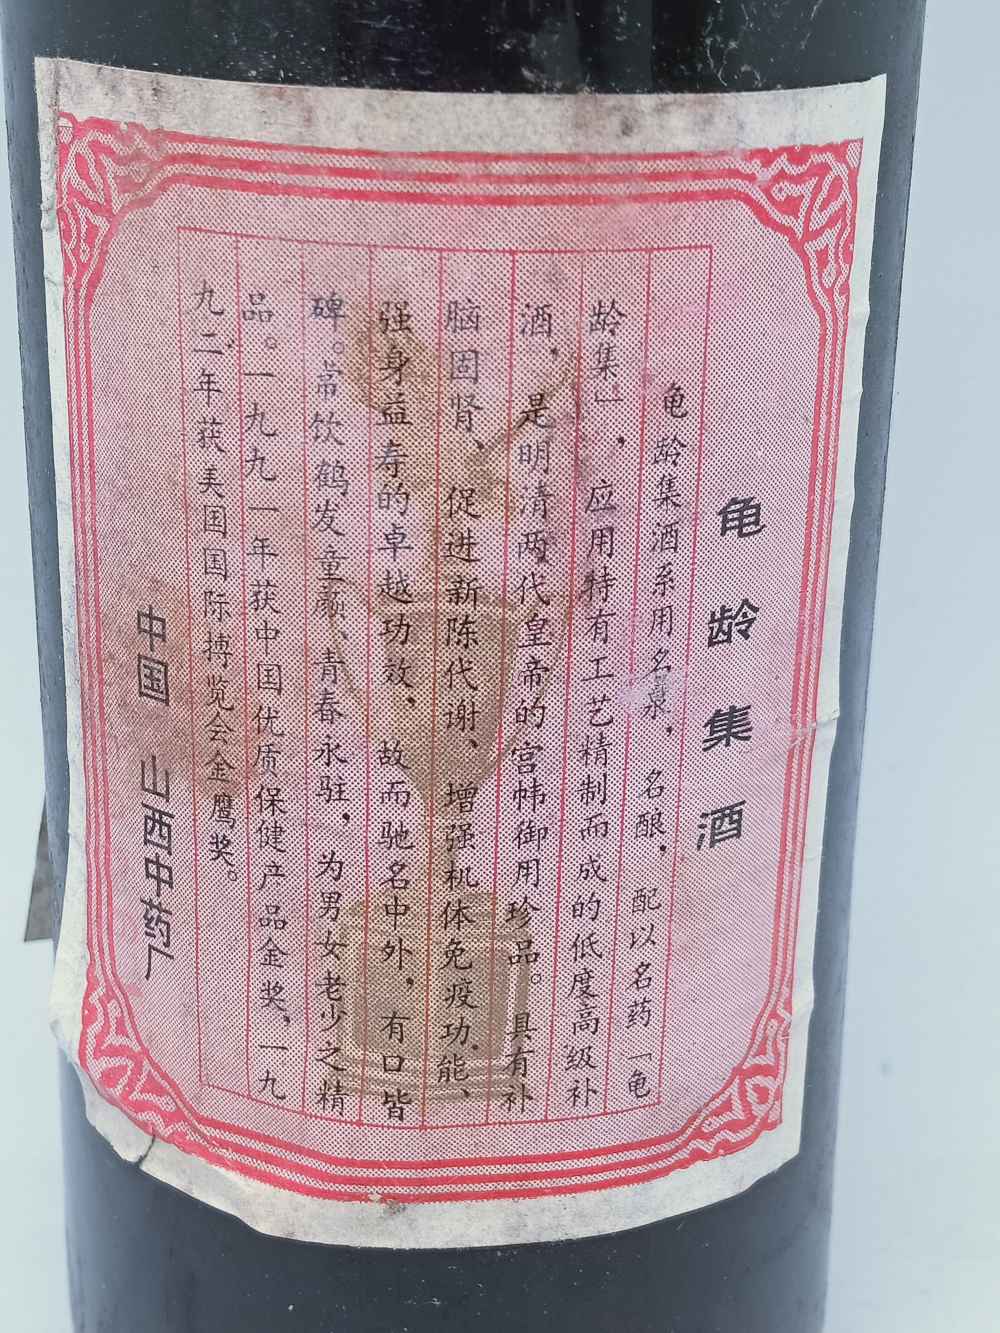 龟龄集酒
龟龄集酒系用名泉，名酿，配以名药「龟
龄集」，应用特有工艺精制而成的低度高级补
酒，是明清两代皇帝的宫帏御用珍品。具有补
脑固肾、促进新陈代谢、增强机体免疫功能、
强身益寿的卓越功效，故而驰名中外，有口皆
碑。常饮鹤发童颜、青春永驻，为男女老少之精
品。一九九一年获中国优质保健产品金奖，一九
九二年获美国国际搏览会金鹰奖。
中国 山西中药厂